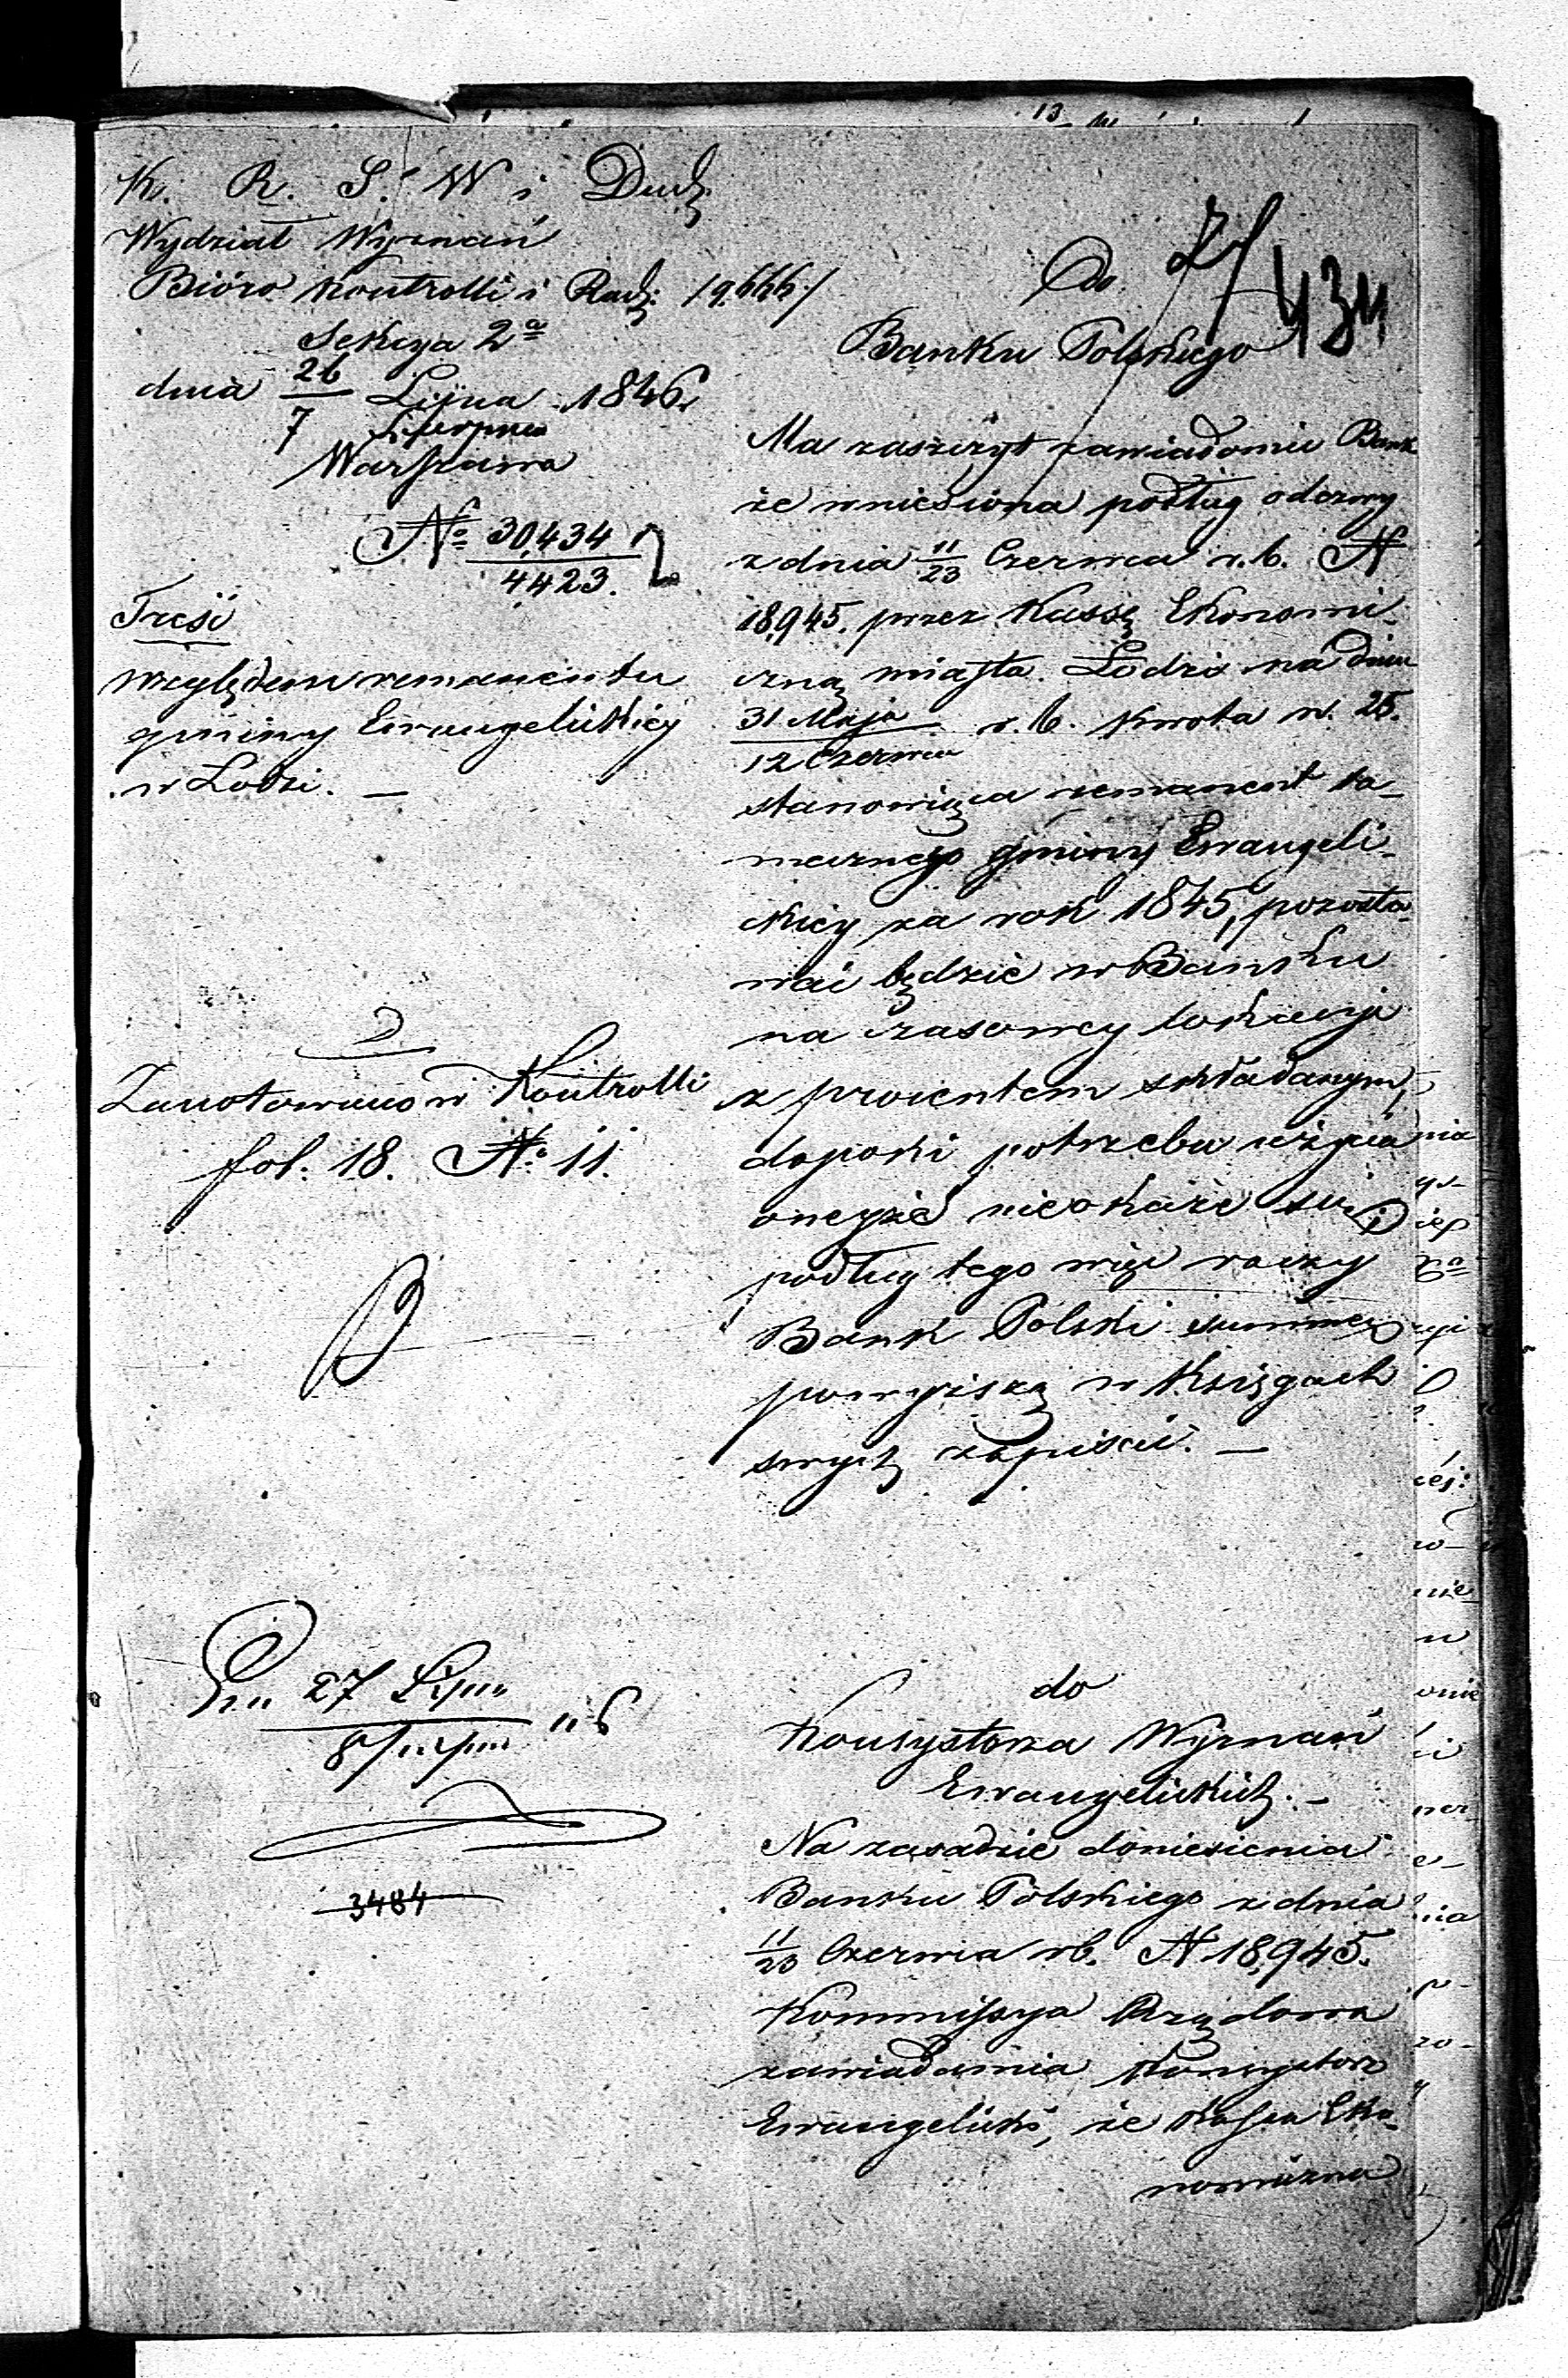 K. R. S. W i Duch
Wydział Wyznań
Bióro Kontrolli i Rach: 19,666/
Sekcya 2ª
dnia 26/7 Lipca/Sierpnia 1846
Warszawa
Nº 30,434/4423.
Treść
względem remanentu
gminy Ewangelickiéj
w Łodzi. —
Zanotowano w Kontrolli
fol. 18. Nº 11.
27 Lipca
8 Sierpnia
3484
434
Do
Banku Polskiego
Ma zaszczyt zawiadomić Bank
że wniesiona podług odezwy
z dnia 11/23 Czerwca r. b. N
18,945. przez Kassę Ekonomi-
czną miasta Łodzi na dniu
31 Maja/12 Czerwca r. b. kwota rs. 25.
stanowiąca remanent ta-
mecznego gminy Ewangeli-
ckiey za rok 1845, pozosta-
wać będzie w Banku
na czasowey lokacyi
z procentem składanym,
dopóki potrzeba użycia
oneyże nieokaże się
podług tego więc raczy
Bank Polski summę
powyższą w Księgach
swych zapisać. —
do
Konsystorza Wyznań
Ewangelickich. —
Na zasadzie doniesienia
Banku Polskiego z dnia
11/23 Czerwca rb. N 18,945.
Kommissya Rządowa
zawiadamia Konsystorz
Ewangelicki, że Kassa Eko-
nomiczna